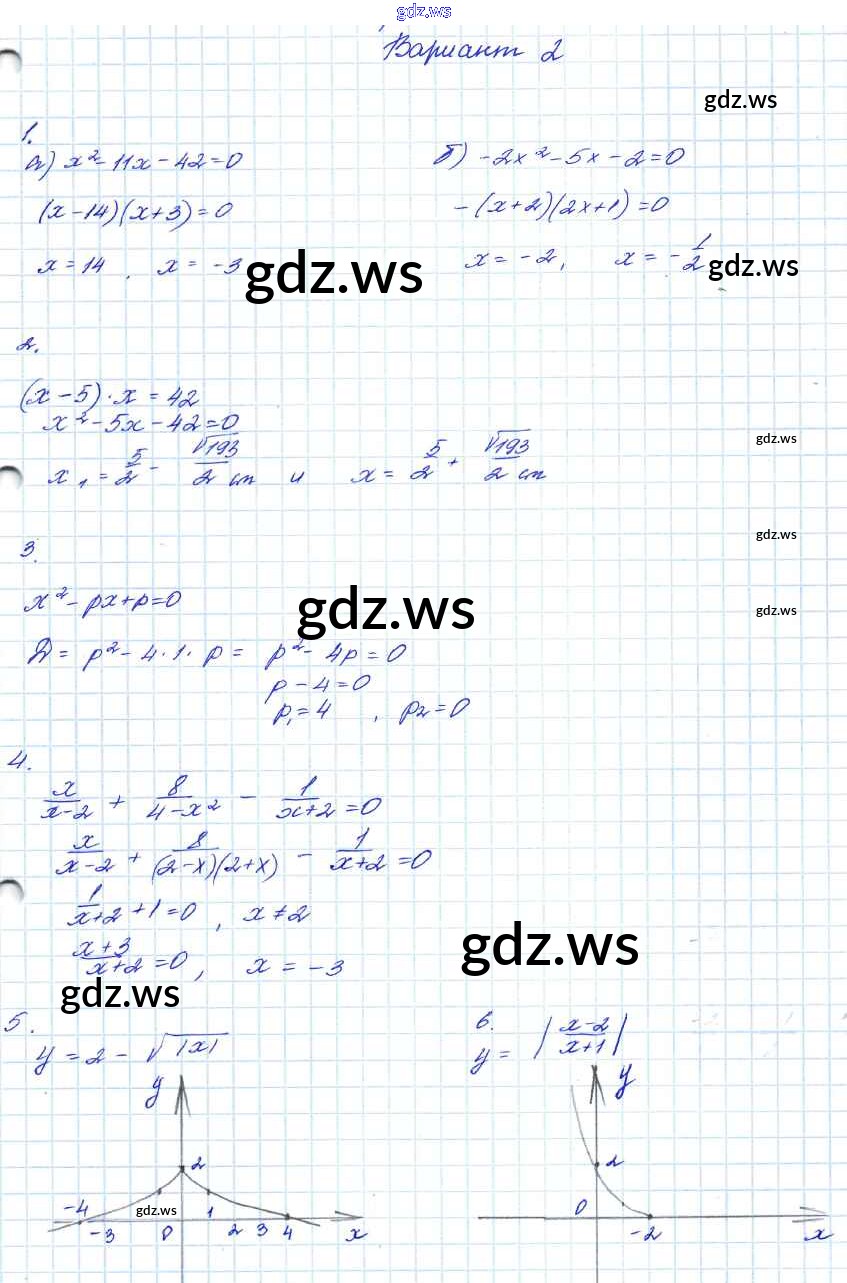 gdz.ws
Вариант 2
gdz.ws
1.
а) x² - 11x - 42 = 0
(x - 14)(x + 3) = 0
x = 14 , x = -3
б) -2x² - 5x - 2 = 0
-(x + 2)(2x + 1) = 0
x = -2, x = -1/2
gdz.ws
gdz.ws
2.
(x - 5) · x = 42
x² - 5x - 42 = 0
gdz.ws
x₁ = 5/2 - √193/2 cm и x = 5/2 + √193/2 cm
3.
gdz.ws
x² - px + p = 0
gdz.ws
gdz.ws
D = p² - 4 · 1 · p = p² - 4p = 0
p - 4 = 0
p₁ = 4 , p₂ = 0
4.
x/(x-2) + 8/(4-x²) - 1/(x+2) = 0
x/(x-2) + 8/((2-x)(2+x)) - 1/(x+2) = 0
1/(x+2) + 1 = 0 , x ≠ 2
(x+3)/(x+2) = 0 , x = -3
gdz.ws
gdz.ws
5.
y = 2 - √|x|
y
2
-4 -3 0 1 2 3 4 x
gdz.ws
6.
y = |(x-2)/(x+1)|
y
2
0 -2 x